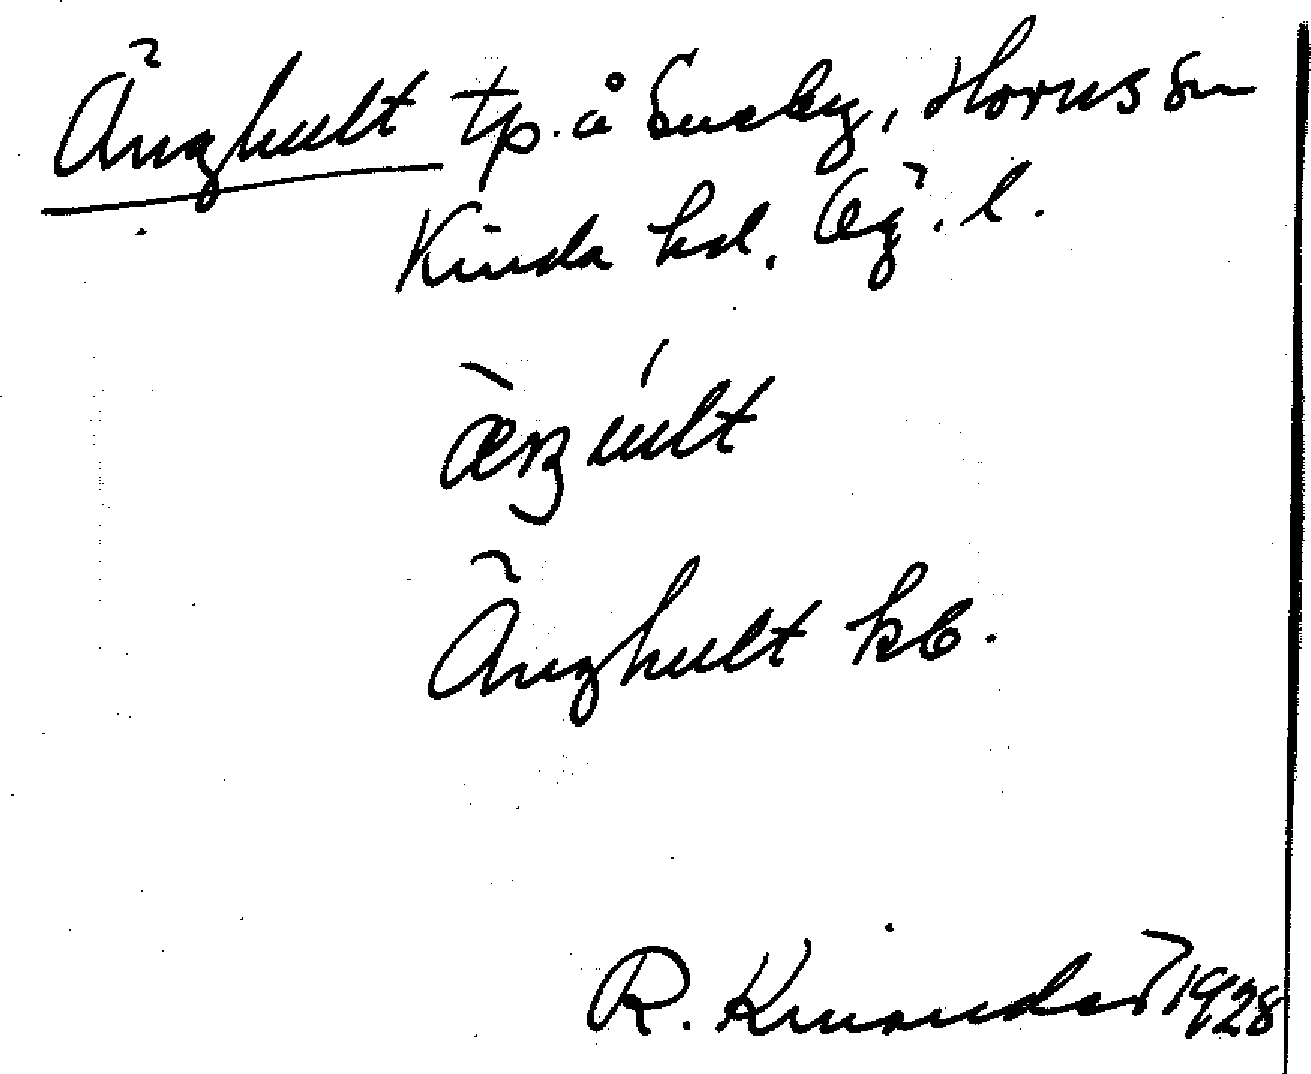 Änghult tp. å Sueby, Horns sn
Kinda hd, Ög. l.
æ̀ŋúlt
Änghult kb.
R. Kinander 1928